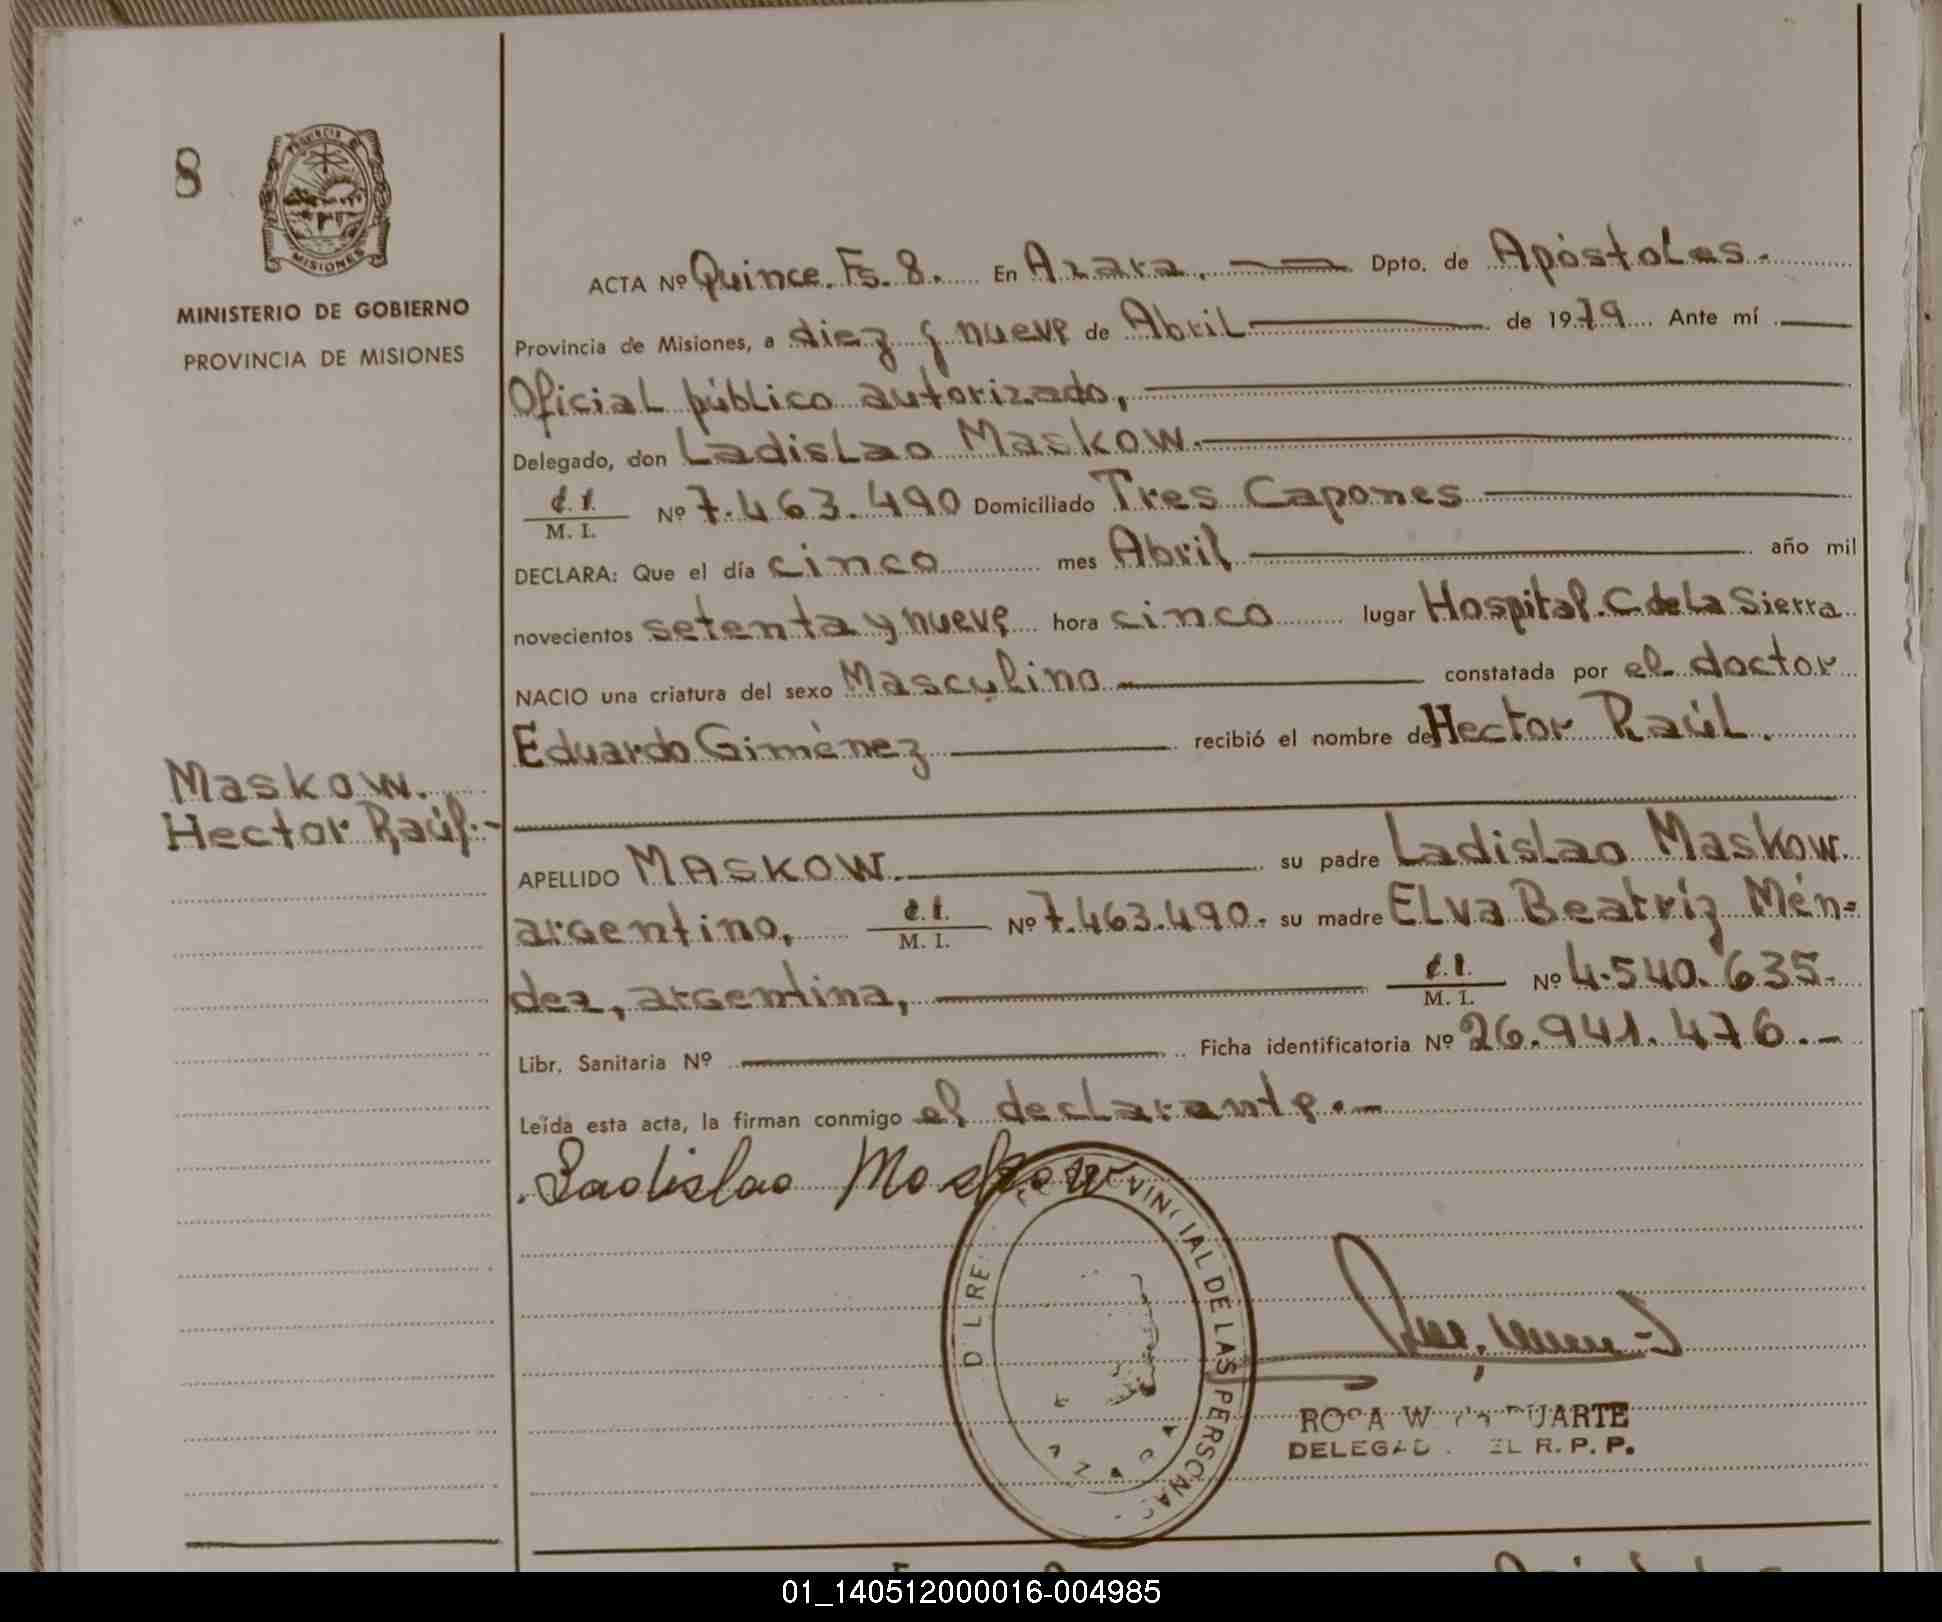 8
PROVINCIA DE
MISIONES
MINISTERIO DE GOBIERNO
PROVINCIA DE MISIONES
ACTA Nº Quince. Fs. 8. En Azara, Dpto. de Apóstoles.
Provincia de Misiones, a diez y nueve de Abril de 1979 Ante mí
Oficial público autorizado,
Delegado, don Ladislao Maskow.
C.I.
M. I. Nº 7.463.490 Domiciliado Tres Capones
DECLARA: Que el día cinco mes Abril año mil
novecientos setenta y nueve hora cinco lugar Hospital. C. de La Sierra
NACIO una criatura del sexo Masculino constatada por el doctor
Eduardo Giménez recibió el nombre de Hector Raúl.
Maskow.
Hector Raúl.-
APELLIDO MASKOW. su padre Ladislao Maskow.
argentino, C.I.
M. I. Nº 7.463.490. su madre ELva Beatriz Mén=
dez, argentina, C.I.
M. I. Nº 4.540.635.
Libr. Sanitaria Nº Ficha identificatoria Nº 26.941.476.-
Leída esta acta, la firman conmigo el declarante.-
Ladislao Maskow
VINCIAL DE LAS PERSONAS
AZARA
ROSA W DUARTE
DELEGAD EL R. P. P.
01_140512000016-004985